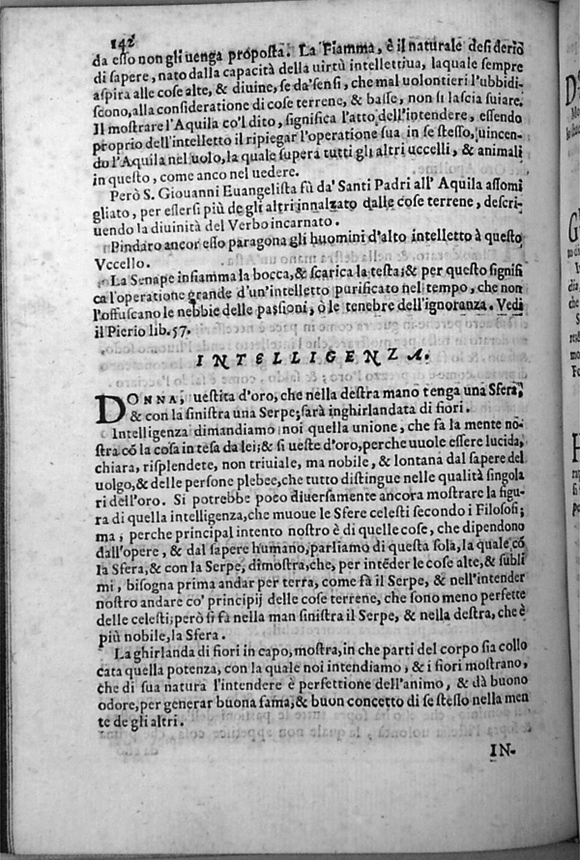 142
da esso non gli uenga proposta. La Fiamma, è il naturale desiderio
di sapere, nato dalla capacità della uirtù intellettiua, laquale sempre
aspira alle cose alte, & diuine, se da'sensi, che mal uolontieri l'ubbidi-
scono, alla consideratione di cose terrene, & basse, non si lascia suiare.
Il mostrare l'Aquila co'l dito, significa l'atto dell'intendere, essendo
proprio dell'intelletto il ripiegar l'operatione sua in se stesso, uincen-
do l'Aquila nel uolo, la quale supera tutti gli altri uccelli, & animali
in questo, come anco nel uedere.
Però S. Giouanni Euangelista fù da' Santi Padri all' Aquila assomi
gliato, per essersi più de gli altri innalzato dalle cose terrene, descri-
uendo la diuinità del Verbo incarnato.
Pindaro ancor esso paragona gli huomini d'alto intelletto à questo
Vccello.
La Senape infiamma la bocca, & scarica la testa; & per questo signifi
ca l'operatione grande d'un'intelletto purificato nel tempo, che non
l'offuscano le nebbie delle passioni, ò le tenebre dell'ignoranza. Vedi
il Pierio lib. 57.
INTELLIGENZA.
DONNA, uestita d'oro, che nella destra mano tenga una Sfera,
& con la sinistra una Serpe; sarà inghirlandata di fiori.
Intelligenza dimandiamo noi quella unione, che fa la mente no-
stra cō la cosa intesa da lei; & si ueste d'oro, perche uuole essere lucida,
chiara, risplendete, non triuiale, ma nobile, & lontana dal sapere del
uolgo, & delle persone plebee, che tutto distingue nelle qualità singola
ri dell'oro. Si potrebbe poco diuersamente ancora mostrare la figu-
ra di quella intelligenza, che muoue le Sfere celesti secondo i Filosofi;
ma, perche principal intento nostro è di quelle cose, che dipendono
dall'opere, & dal sapere humano, parliamo di questa sola, la quale cō
la Sfera, & con la Serpe, dimostra, che, per intēder le cose alte, & subli
mi, bisogna prima andar per terra, come fà il Serpe, & nell'intender
nostro andare co' principij delle cose terrene, che sono meno perfette
delle celesti; però si fà nella man sinistra il Serpe, & nella destra, che è
più nobile, la Sfera.
La ghirlanda di fiori in capo, mostra, in che parti del corpo sia collo
cata quella potenza, con la quale noi intendiamo, & i fiori mostrano,
che di sua natura l'intendere è perfettione dell'animo, & dà buono
odore, per generar buona fama, & buon concetto di se stesso nella men
te de gli altri.
IN-